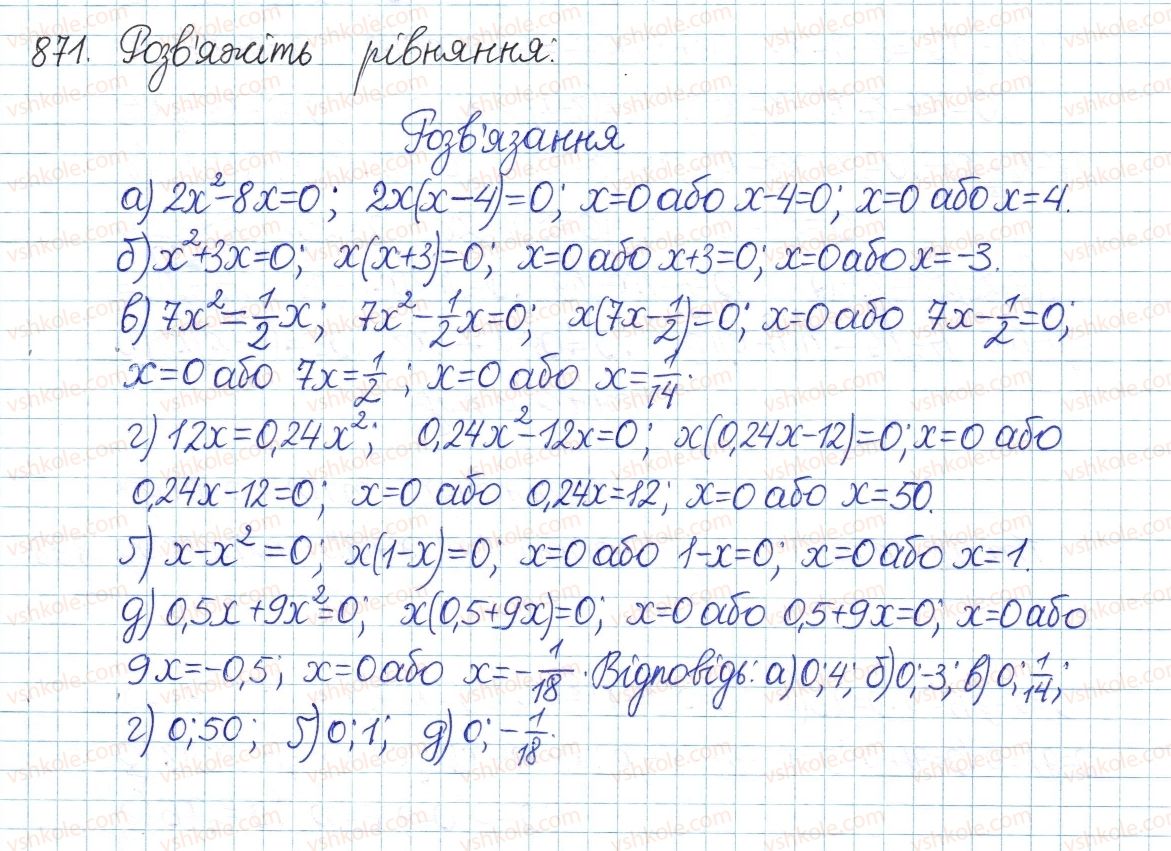 871. Розв'яжіть рівняння:
Розв'язання
а) 2x²-8x=0; 2x(x-4)=0; x=0 або x-4=0; x=0 або x=4.
б) x²+3x=0; x(x+3)=0; x=0 або x+3=0; x=0 або x=-3.
в) 7x²=1/2x; 7x²-1/2x=0; x(7x-1/2)=0; x=0 або 7x-1/2=0;
x=0 або 7x=1/2; x=0 або x=1/14.
г) 12x=0,24x²; 0,24x²-12x=0; x(0,24x-12)=0; x=0 або
0,24x-12=0; x=0 або 0,24x=12; x=0 або x=50.
ґ) x-x²=0; x(1-x)=0; x=0 або 1-x=0; x=0 або x=1.
д) 0,5x+9x²=0; x(0,5+9x)=0; x=0 або 0,5+9x=0; x=0 або
9x=-0,5; x=0 або x=-1/18. Відповідь: а) 0; 4; б) 0;-3; в) 0; 1/14;
г) 0; 50; ґ) 0; 1; д) 0; -1/18.